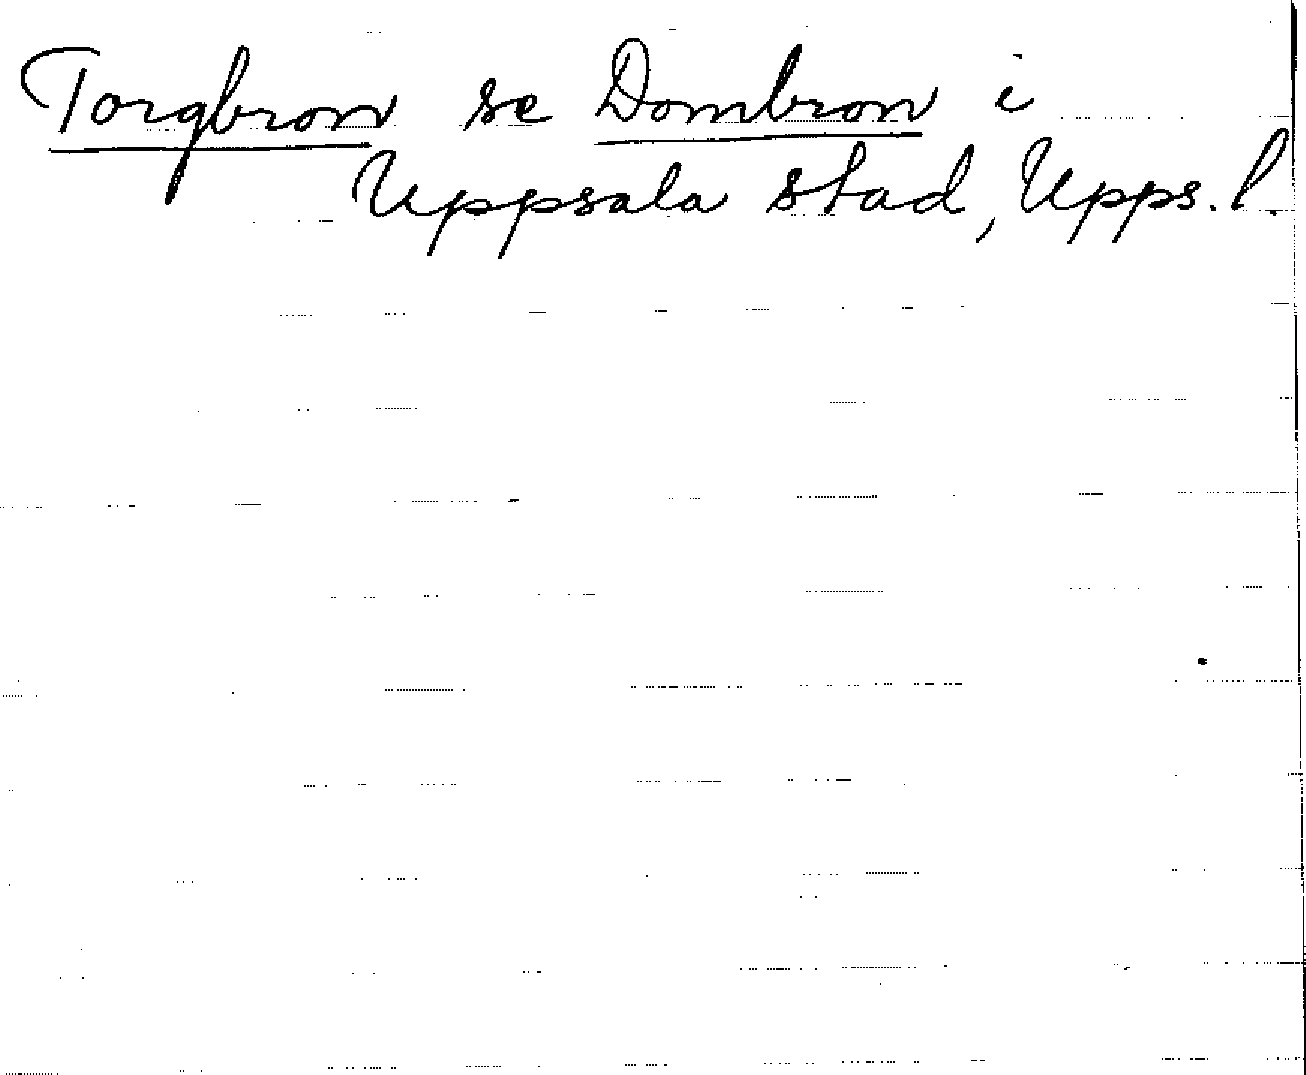 Torgbron se Dombron i
Uppsala stad, Upps. l.